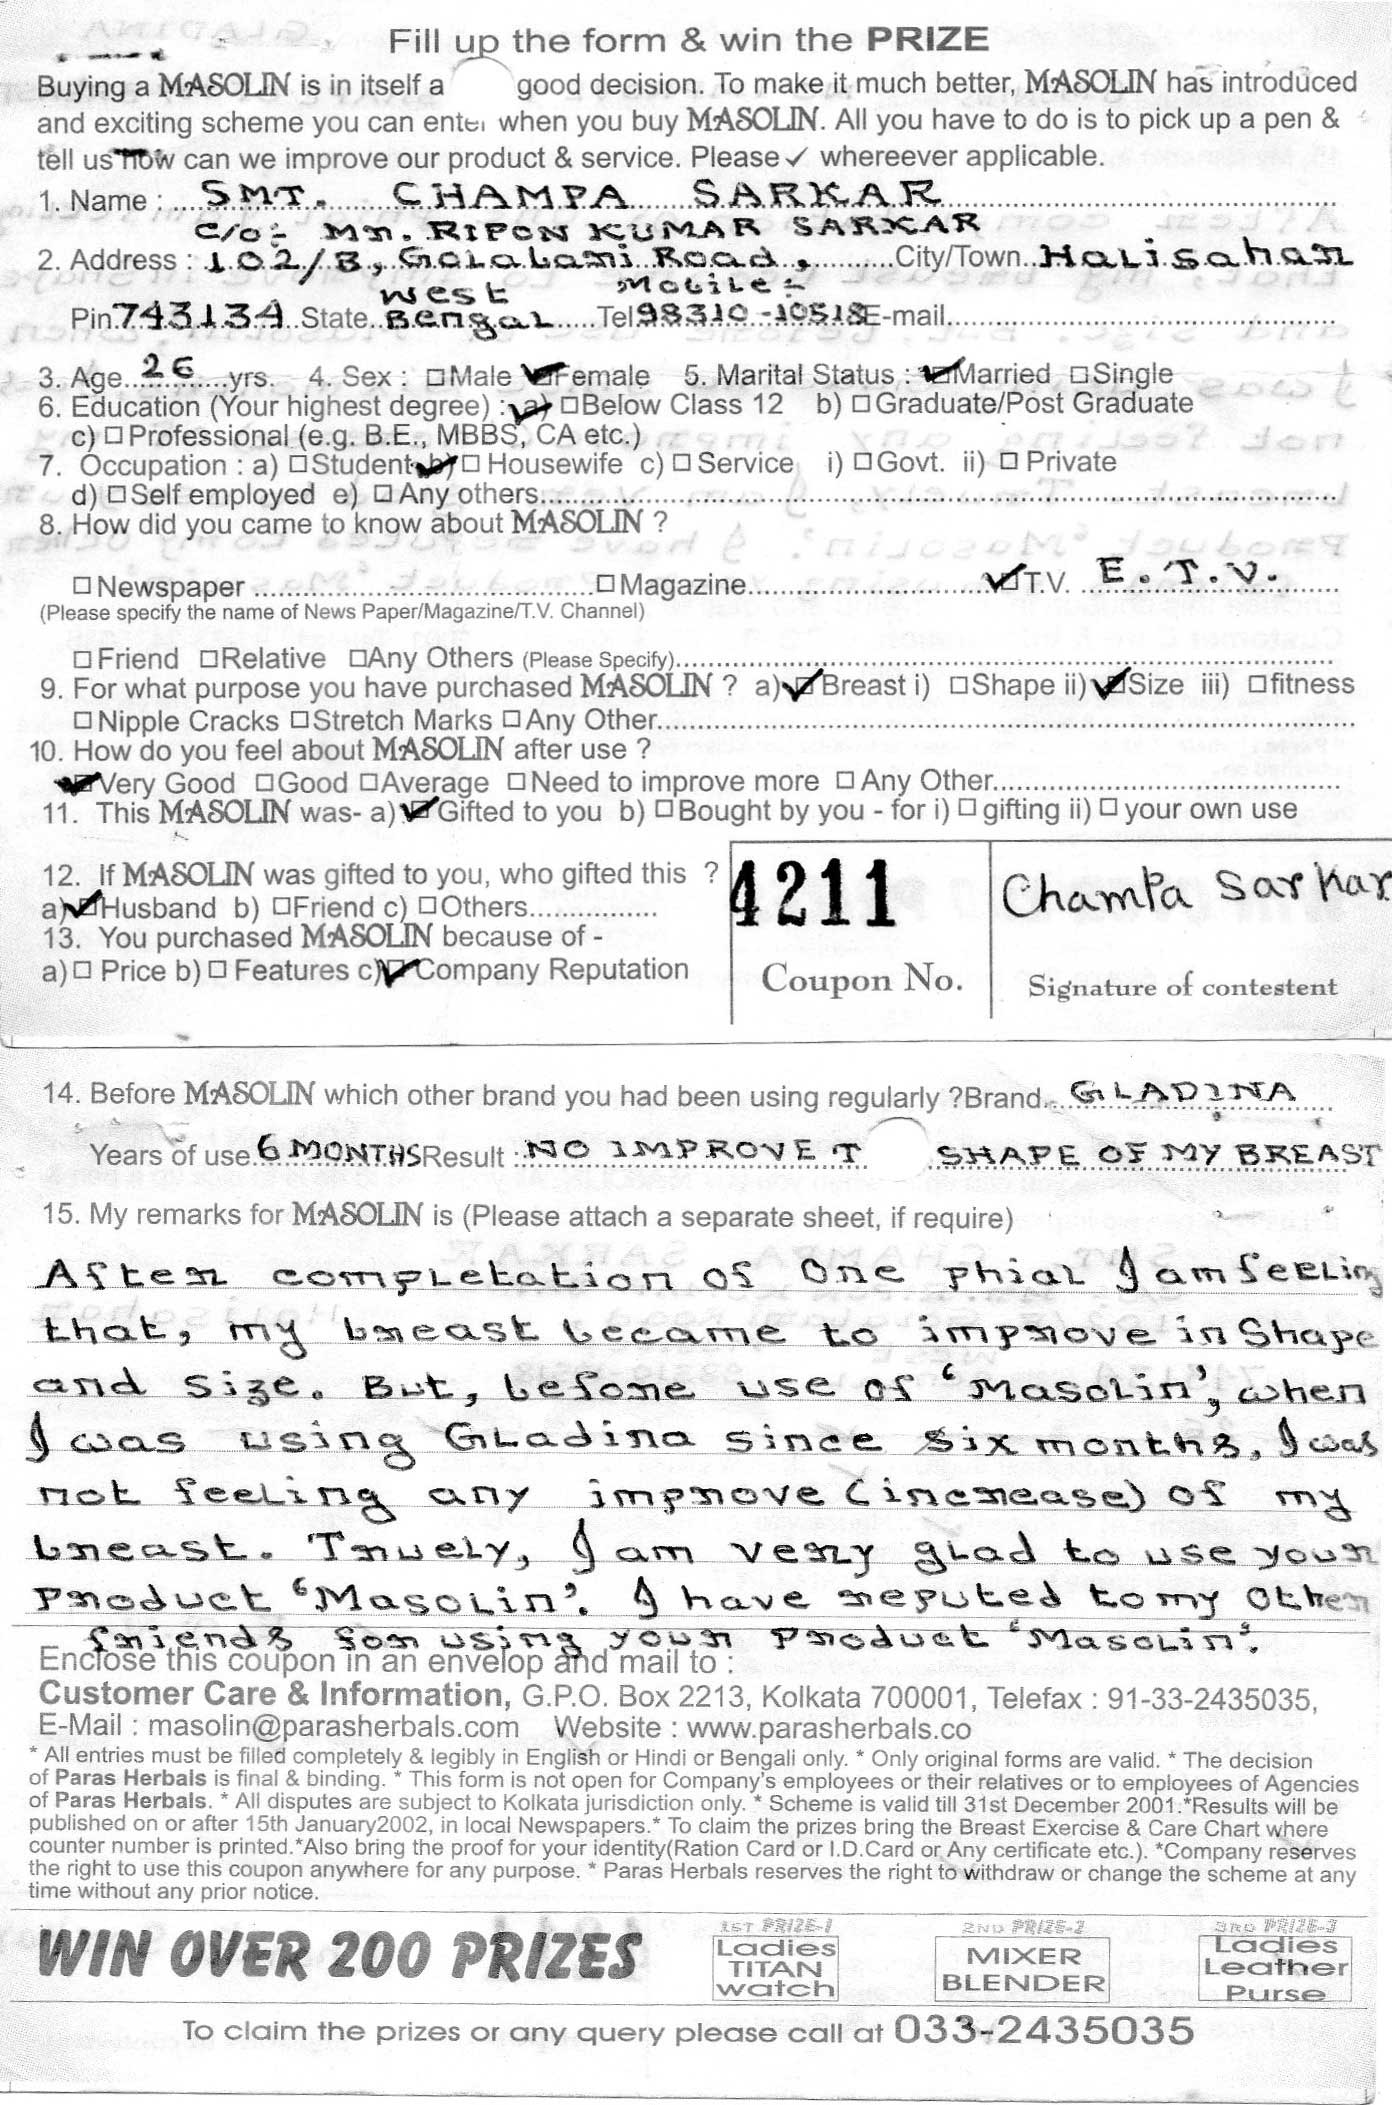 Fill up the form & win the PRIZE
Buying a MASOLIN is in itself a good decision. To make it much better, MASOLIN has introduced
and exciting scheme you can enter when you buy MASOLIN. All you have to do is to pick up a pen &
tell us how can we improve our product & service. Please ✓ whereever applicable.
1. Name : SMT. CHAMPA SARKAR
C/o:- Mr. RIPON KUMAR SARKAR
2. Address : 102/B, Road, City/Town Halisahar
West Mobile:-
Pin 743134 State Bengal Tel 98310-10518 E-mail
3. Age 26 yrs. 4. Sex : ☐Male ☑Female 5. Marital Status : ☑Married ☐Single
6. Education (Your highest degree) : a) ☐Below Class 12 b) ☐Graduate/Post Graduate
c) ☐Professional (e.g. B.E., MBBS, CA etc.)
7. Occupation : a) ☐Student b) ☐Housewife c) ☐Service i) ☐Govt. ii) ☐Private
d) ☐Self employed e) ☐Any others
8. How did you came to know about MASOLIN ?
☐Newspaper ☐Magazine ☑T.V. E.T.V.
(Please specify the name of News Paper/Magazine/T.V. Channel)
☐Friend ☐Relative ☐Any Others (Please Specify)
9. For what purpose you have purchased MASOLIN ? a) ☑Breast i) ☐Shape ii) ☑Size iii) ☐fitness
☐Nipple Cracks ☐Stretch Marks ☐Any Other
10. How do you feel about MASOLIN after use ?
☑Very Good ☐Good ☐Average ☐Need to improve more ☐Any Other
11. This MASOLIN was- a) ☑Gifted to you b) ☐Bought by you - for i) ☐gifting ii) ☐your own use
12. If MASOLIN was gifted to you, who gifted this ?
a) ☑Husband b) ☐Friend c) ☐Others
13. You purchased MASOLIN because of -
a) ☐Price b) ☐Features c) ☑Company Reputation
4211
Coupon No.
Champa Sarkar
Signature of contestent
14. Before MASOLIN which other brand you had been using regularly ?Brand GLADINA
Years of use 6 MONTHS Result : NO IMPROVE T SHAPE OF MY BREAST
15. My remarks for MASOLIN is (Please attach a separate sheet, if require)
After completation of one phial I am feeling
that, my breast became to improve in Shape
and size. But, before use of 'Masolin', when
I was using Gladina since six months, I was
not feeling any improve (increase) of my
breast. Truely, I am very glad to use your
Product 'Masolin'. I have reputed to my other
friends for using your Product 'Masolin'.
Enclose this coupon in an envelop and mail to :
Customer Care & Information, G.P.O. Box 2213, Kolkata 700001, Telefax : 91-33-2435035,
E-Mail : masolin@parasherbals.com Website : www.parasherbals.co
* All entries must be filled completely & legibly in English or Hindi or Bengali only. * Only original forms are valid. * The decision
of Paras Herbals is final & binding. * This form is not open for Company's employees or their relatives or to employees of Agencies
of Paras Herbals. * All disputes are subject to Kolkata jurisdiction only. * Scheme is valid till 31st December 2001.*Results will be
published on or after 15th January2002, in local Newspapers.* To claim the prizes bring the Breast Exercise & Care Chart where
counter number is printed.*Also bring the proof for your identity(Ration Card or I.D.Card or Any certificate etc.). *Company reserves
the right to use this coupon anywhere for any purpose. * Paras Herbals reserves the right to withdraw or change the scheme at any
time without any prior notice.
WIN OVER 200 PRIZES
1ST PRIZE-1
Ladies
TITAN
watch
2ND PRIZE-2
MIXER
BLENDER
3RD PRIZE-3
Ladies
Leather
Purse
To claim the prizes or any query please call at 033-2435035